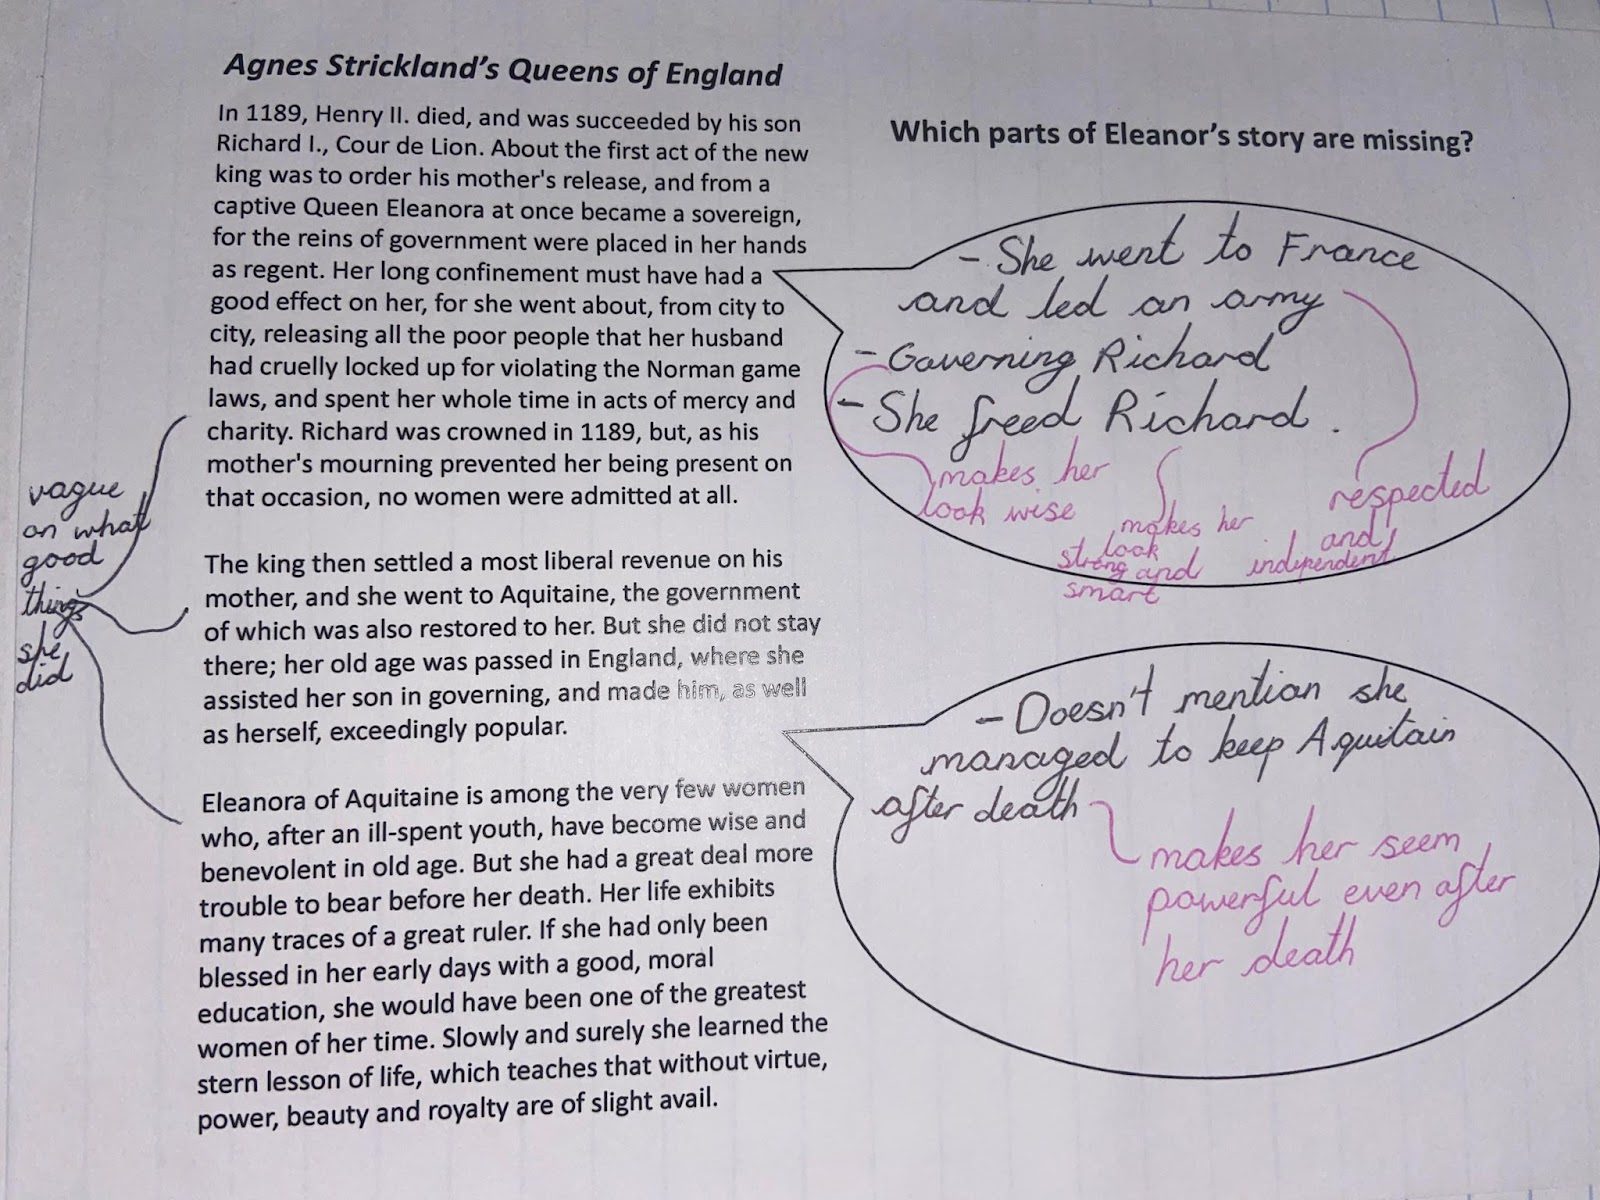 Agnes Strickland's Queens of England
In 1189, Henry II. died, and was succeeded by his son
Richard I., Cour de Lion. About the first act of the new
king was to order his mother's release, and from a
captive Queen Eleanora at once became a sovereign,
for the reins of government were placed in her hands
as regent. Her long confinement must have had a
good effect on her, for she went about, from city to
city, releasing all the poor people that her husband
had cruelly locked up for violating the Norman game
laws, and spent her whole time in acts of mercy and
charity. Richard was crowned in 1189, but, as his
mother's mourning prevented her being present on
that occasion, no women were admitted at all.
The king then settled a most liberal revenue on his
mother, and she went to Aquitaine, the government
of which was also restored to her. But she did not stay
there; her old age was passed in England, where she
assisted her son in governing, and made him, as well
as herself, exceedingly popular.
Eleanora of Aquitaine is among the very few women
who, after an ill-spent youth, have become wise and
benevolent in old age. But she had a great deal more
trouble to bear before her death. Her life exhibits
many traces of a great ruler. If she had only been
blessed in her early days with a good, moral
education, she would have been one of the greatest
women of her time. Slowly and surely she learned the
stern lesson of life, which teaches that without virtue,
power, beauty and royalty are of slight avail.
vague
on what
good
things
she
did
Which parts of Eleanor's story are missing?
- She went to France
and led an army
- Governing Richard
- She freed Richard.
makes her
look wise
makes her
look
strong and
smart
respected
and
independent
- Doesn't mention she
managed to keep Aquitain
after death
makes her seem
powerful even after
her death